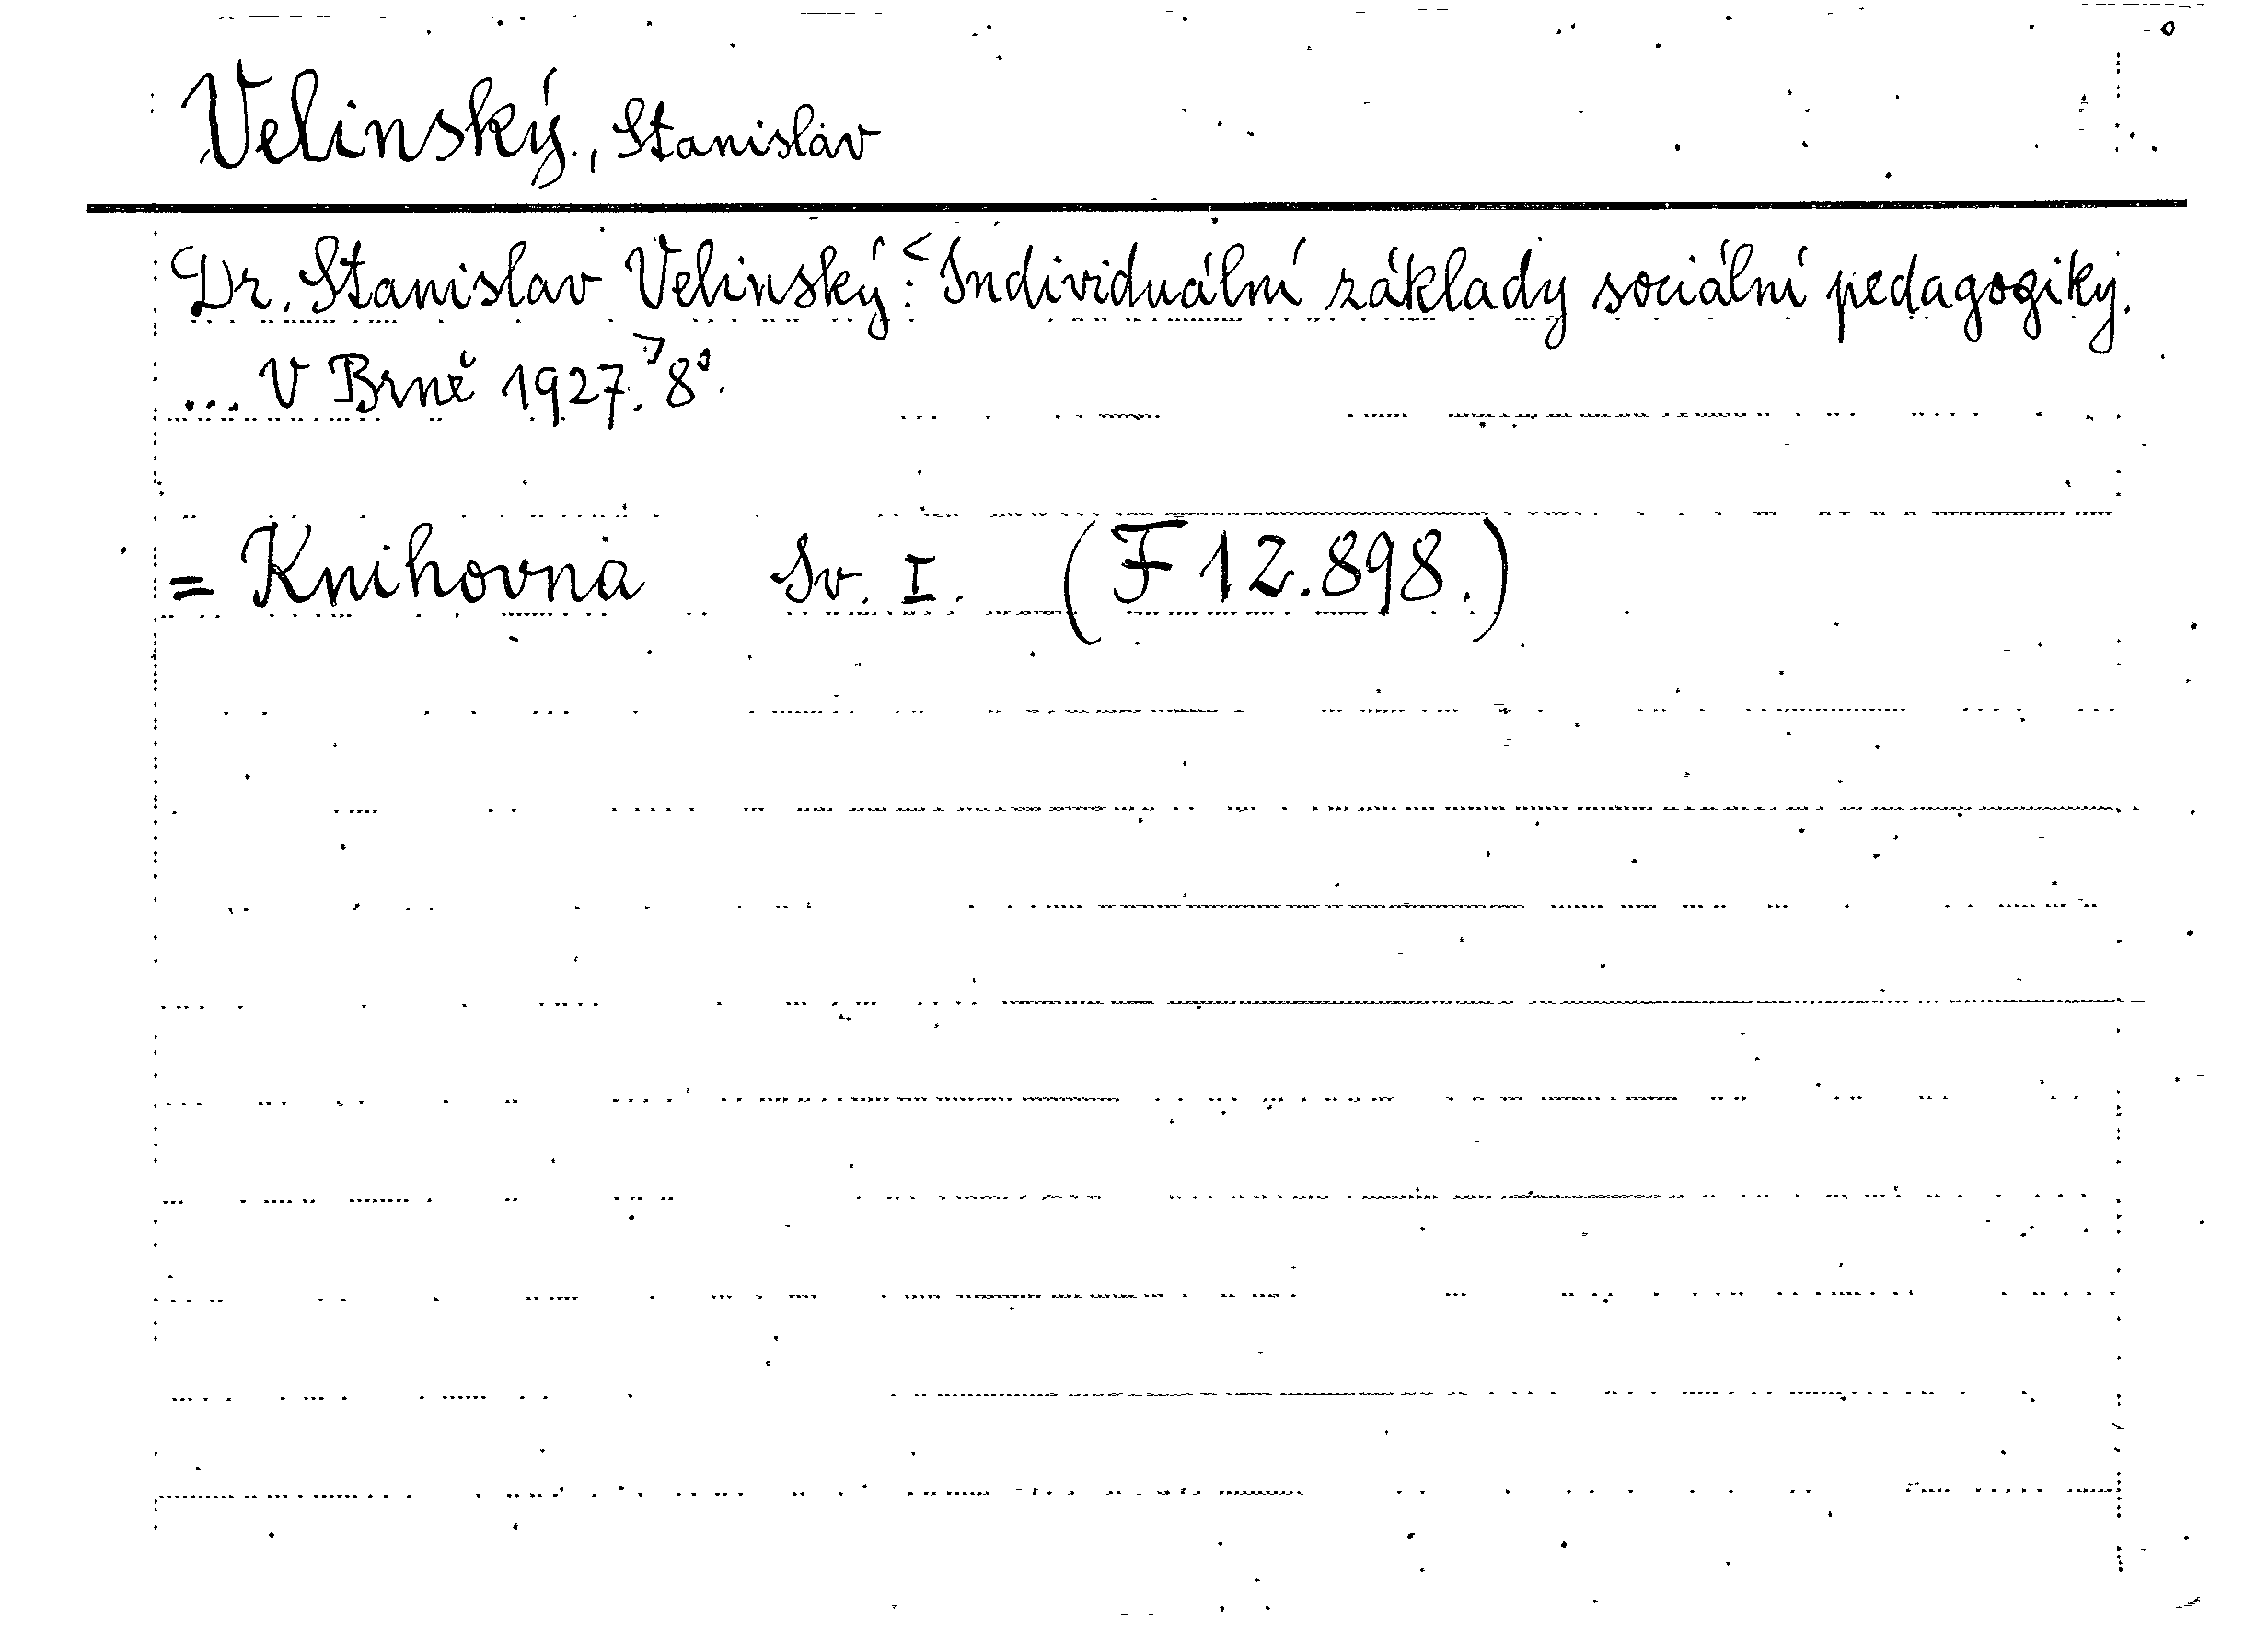 Velinský, Stanislav
Dr. Stanislav Velinský: <Individuální základy sociální pedagogiky.
... V Brně 1927.> 8°.
= Knihovna Sv. I. (F 12.898.)